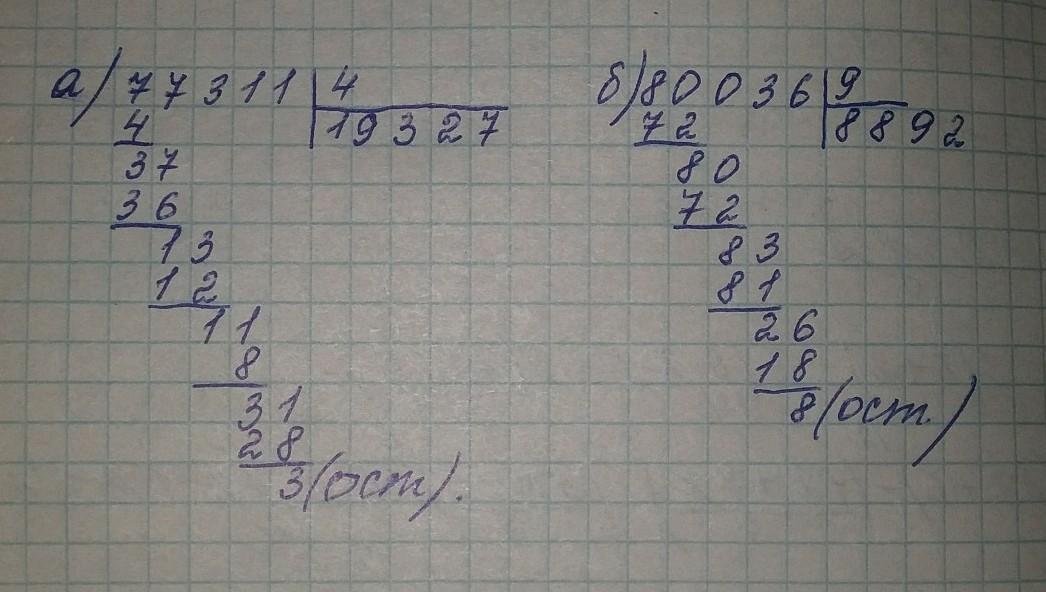 а) 77311 | 4
4 | 19327
37
36
13
12
11
8
31
28
3 (ост).
б) 80036 | 9
72 | 8892
80
72
83
81
26
18
8 (ост.)